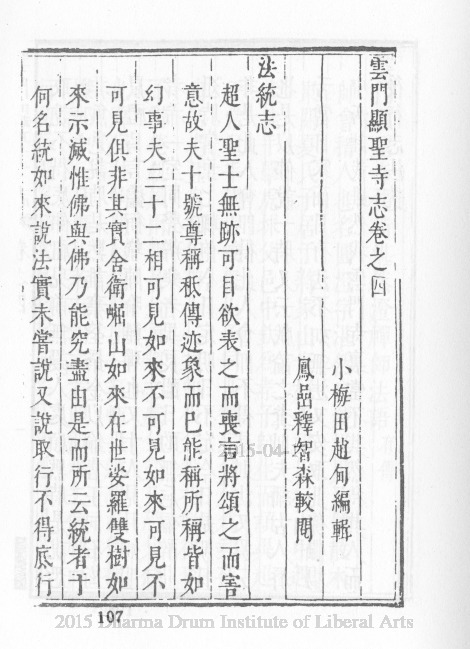 雲門顯聖寺志卷之四
小梅田趙甸編輯
鳳邑釋智森較閱
法統志
超人聖士無跡可目欲表之而喪言將頌之而害
意故夫十號尊稱祗傳迹象而已能稱所稱皆如
幻事夫三十二相可見如來不可見如來可見不
可見俱非其實舍衛崛山如來在世娑羅雙樹如
來示滅惟佛與佛乃能究盡由是而所云統者于
何名統如來說法實未嘗說又說取行不得底行
107
2015-04-1
2015 Dharma Drum Institute of Liberal Arts